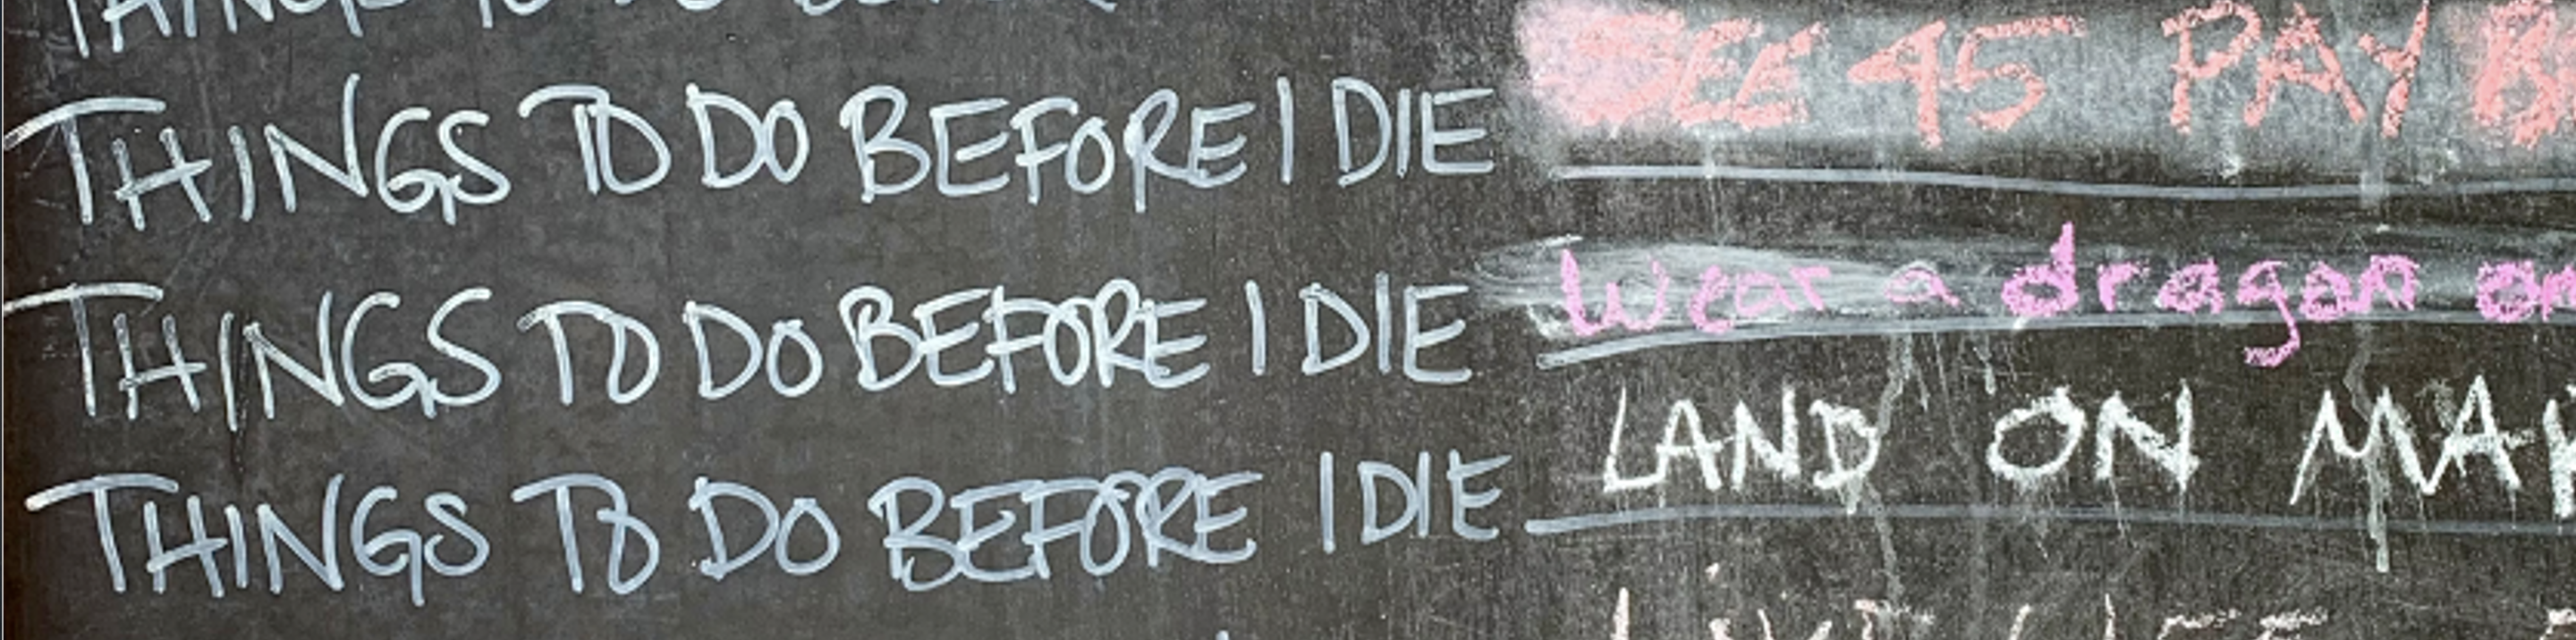 THINGS TO DO BEFORE
THINGS TO DO BEFORE I DIE SEE 45 PAY
THINGS TO DO BEFORE I DIE Wear a dragon
THINGS TO DO BEFORE I DIE LAND ON